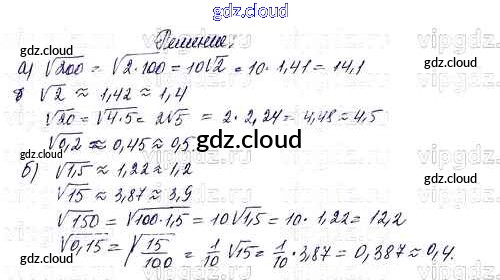 gdz.cloud
Решение.
gdz.cloud
gdz.cloud
а) √200 = √2·100 = 10√2 = 10·1,41 = 14,1
б √2 ≈ 1,42 ≈ 1,4
√20 = √4·5 = 2√5 = 2·2,24 = 4,48 ≈ 4,5
√0,2 ≈ 0,45 ≈ 0,5
gdz.cloud
б) √1,5 ≈ 1,22 ≈ 1,2
√15 ≈ 3,87 ≈ 3,9
√150 = √100·1,5 = 10√1,5 = 10·1,22 = 12,2
√0,15 = √15/100 = 1/10 √15 = 1/10 · 3,87 = 0,387 ≈ 0,4.
gdz.cloud
gdz.cloud
gdz.cloud